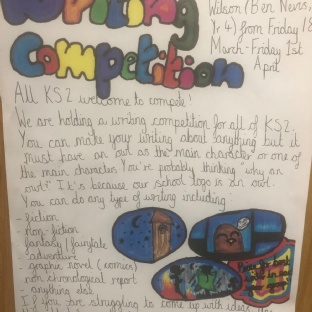 Writing
Competition
Wilson (Ben Nevis,
Yr 4) from Friday
March - Friday 1st
April
All KS2 welcome to compete!
We are holding a writing competition for all of KS2.
You can make your writing about anything but it
must have an owl as the main character or one of
the main character. You're probably thinking why an
owl? It's because our school logo is an owl.
You can do any type of writing including:
- fiction
- non-fiction
- fantasy/fairytale
- adventure
- graphic novel (comics)
- non chronological report
- anything else
If you are struggling to come up with ideas